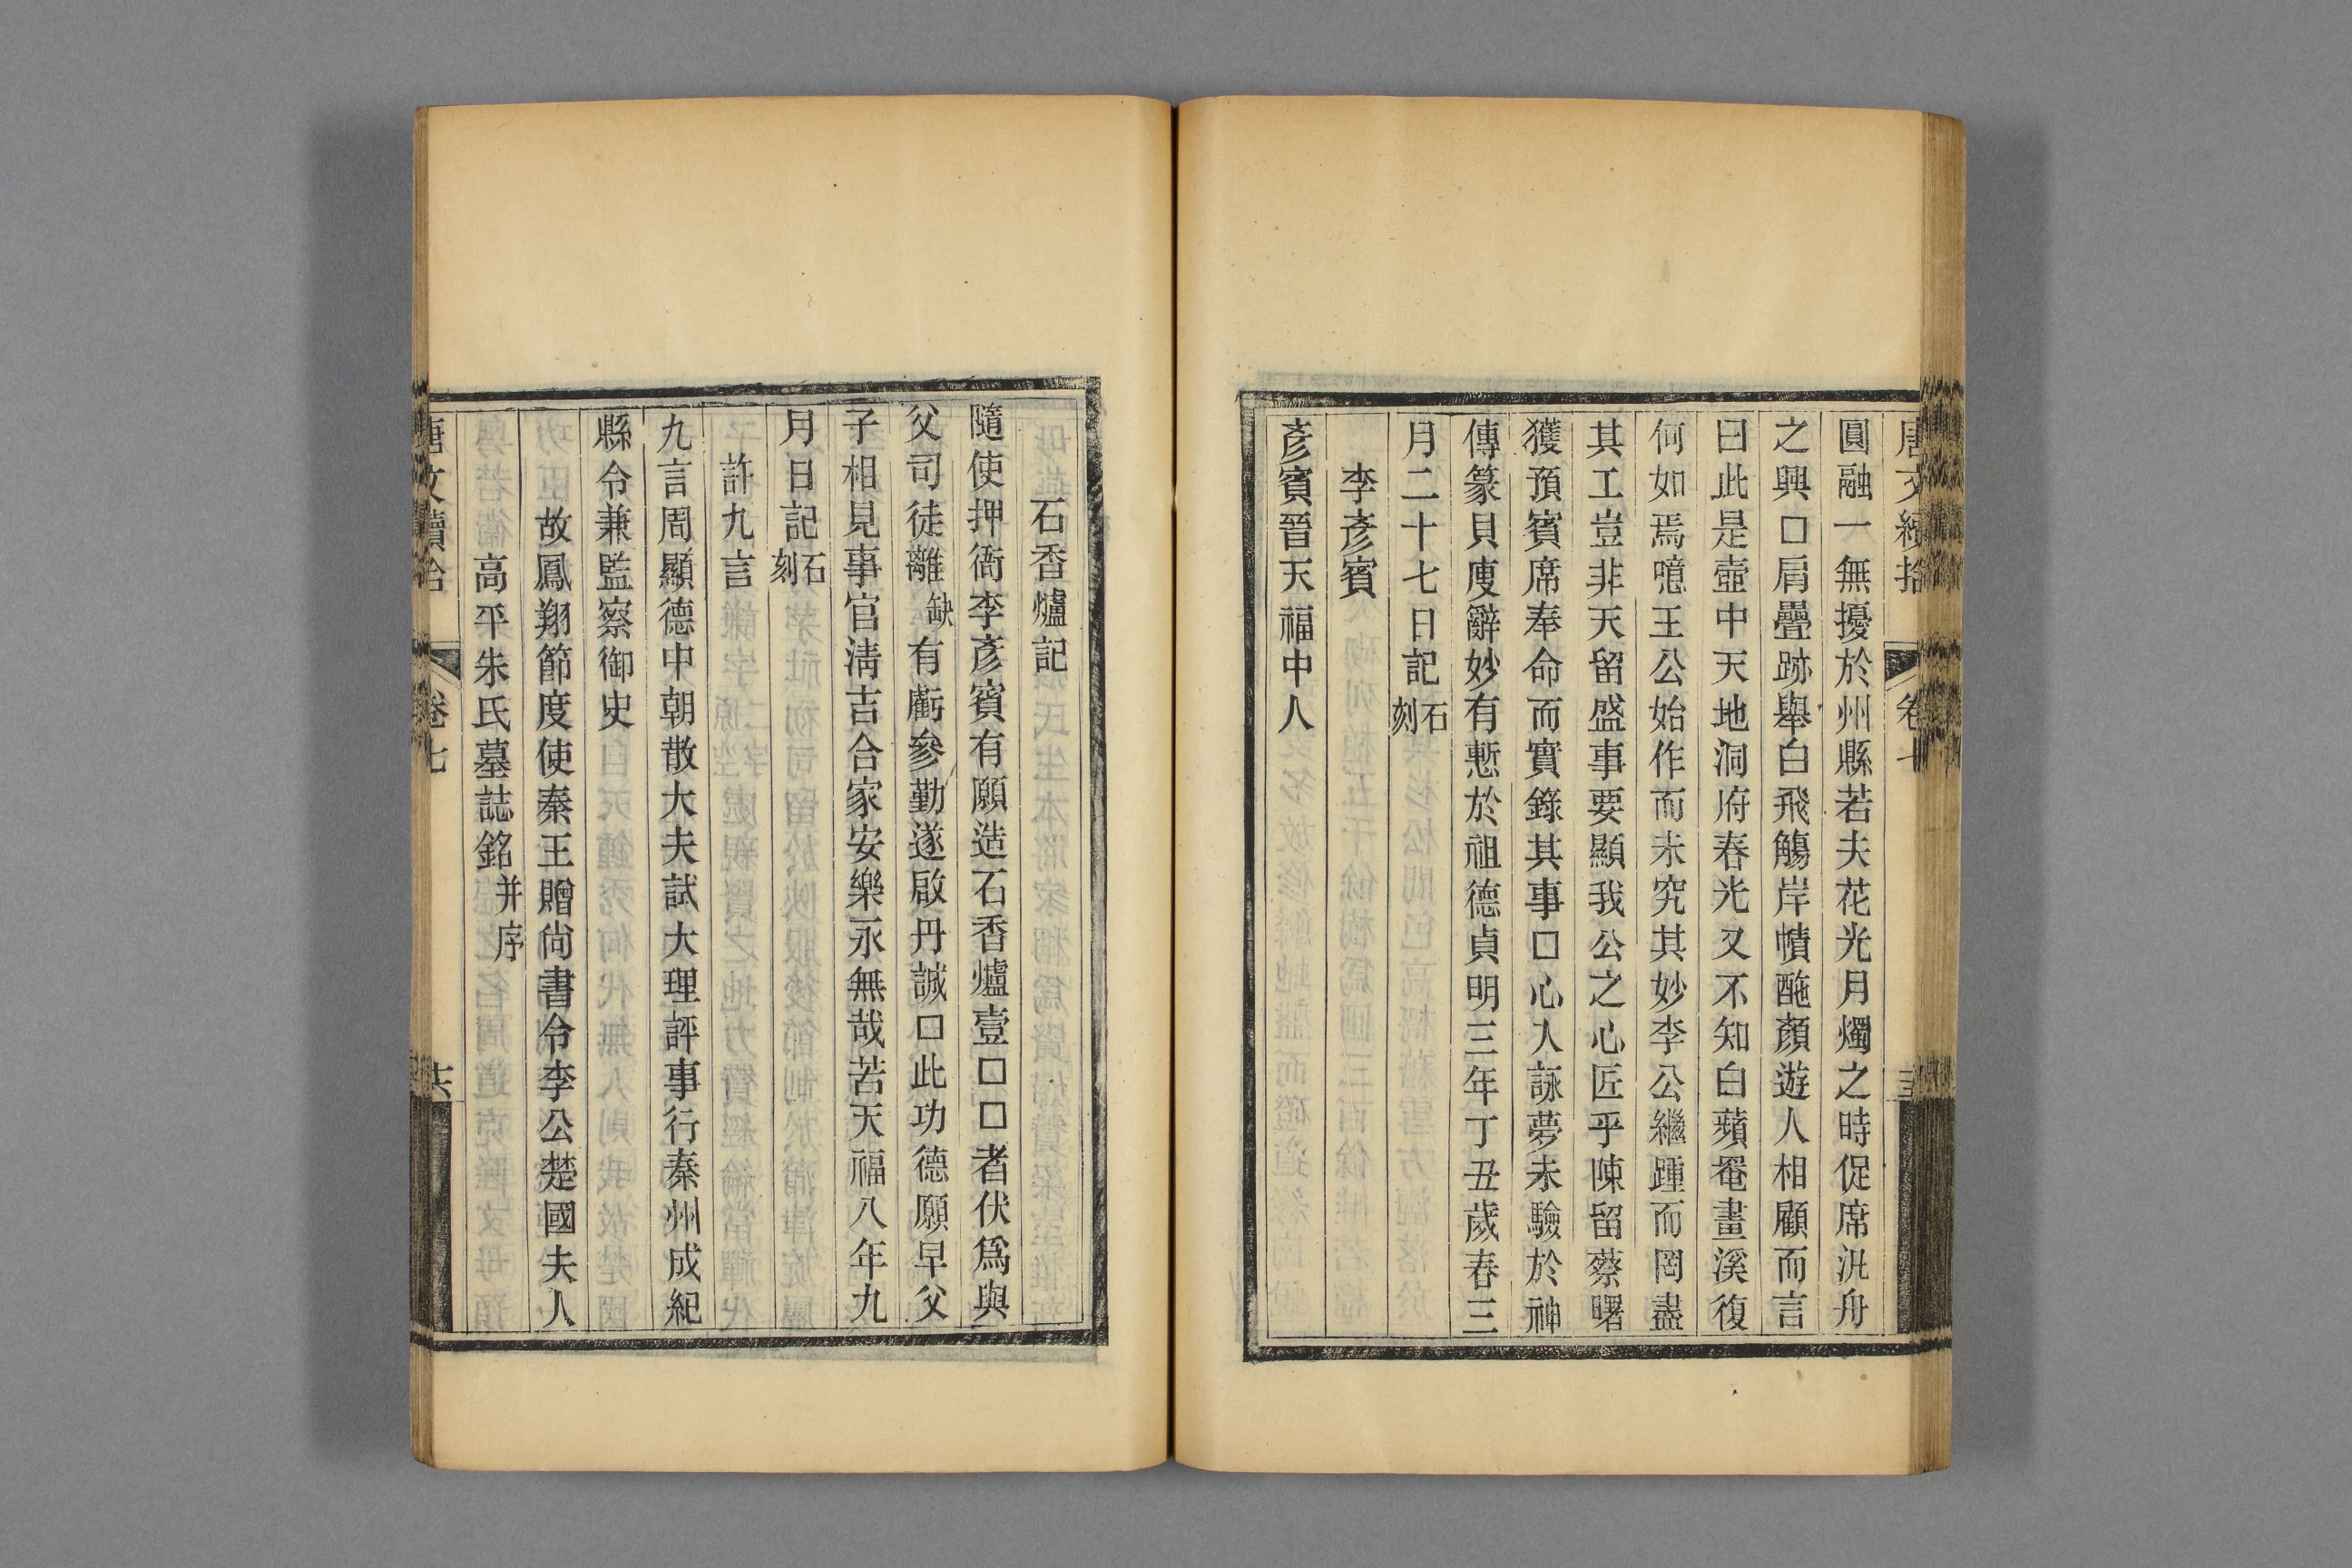 唐文續拾 卷七
圓融一無擾於州縣若夫花光月燭之時促席汎舟
之興□肩疊跡舉白飛觴岸幘酏顏遊人相顧而言
曰此是壺中天地洞府春光又不知白蘋罨畫溪復
何如焉噫王公始作而未究其妙李公繼踵而罔盡
其工豈非天留盛事要顯我公之心匠乎陳留蔡曙
獲預賓席奉命而實錄其事□心人詠夢未驗於神
傳篆貝庾辭妙有慙於祖德貞明三年丁丑歲春三
月二十七日記石刻
李彥賓
彥賓晉天福中人
石香爐記
隨使押衙李彥賓有願造石香爐壹□□者伏爲與
父司徒離缺有虧參勤遂啟丹誠□此功德願早父
子相見事官清吉合家安樂永無哉苦天福八年九
月日記石刻
許九言
九言周顯德中朝散大夫試大理評事行秦州成紀
縣令兼監察御史
故鳳翔節度使秦王贈尙書令李公楚國夫人
高平朱氏墓誌銘并序
唐文續拾 卷七 十六